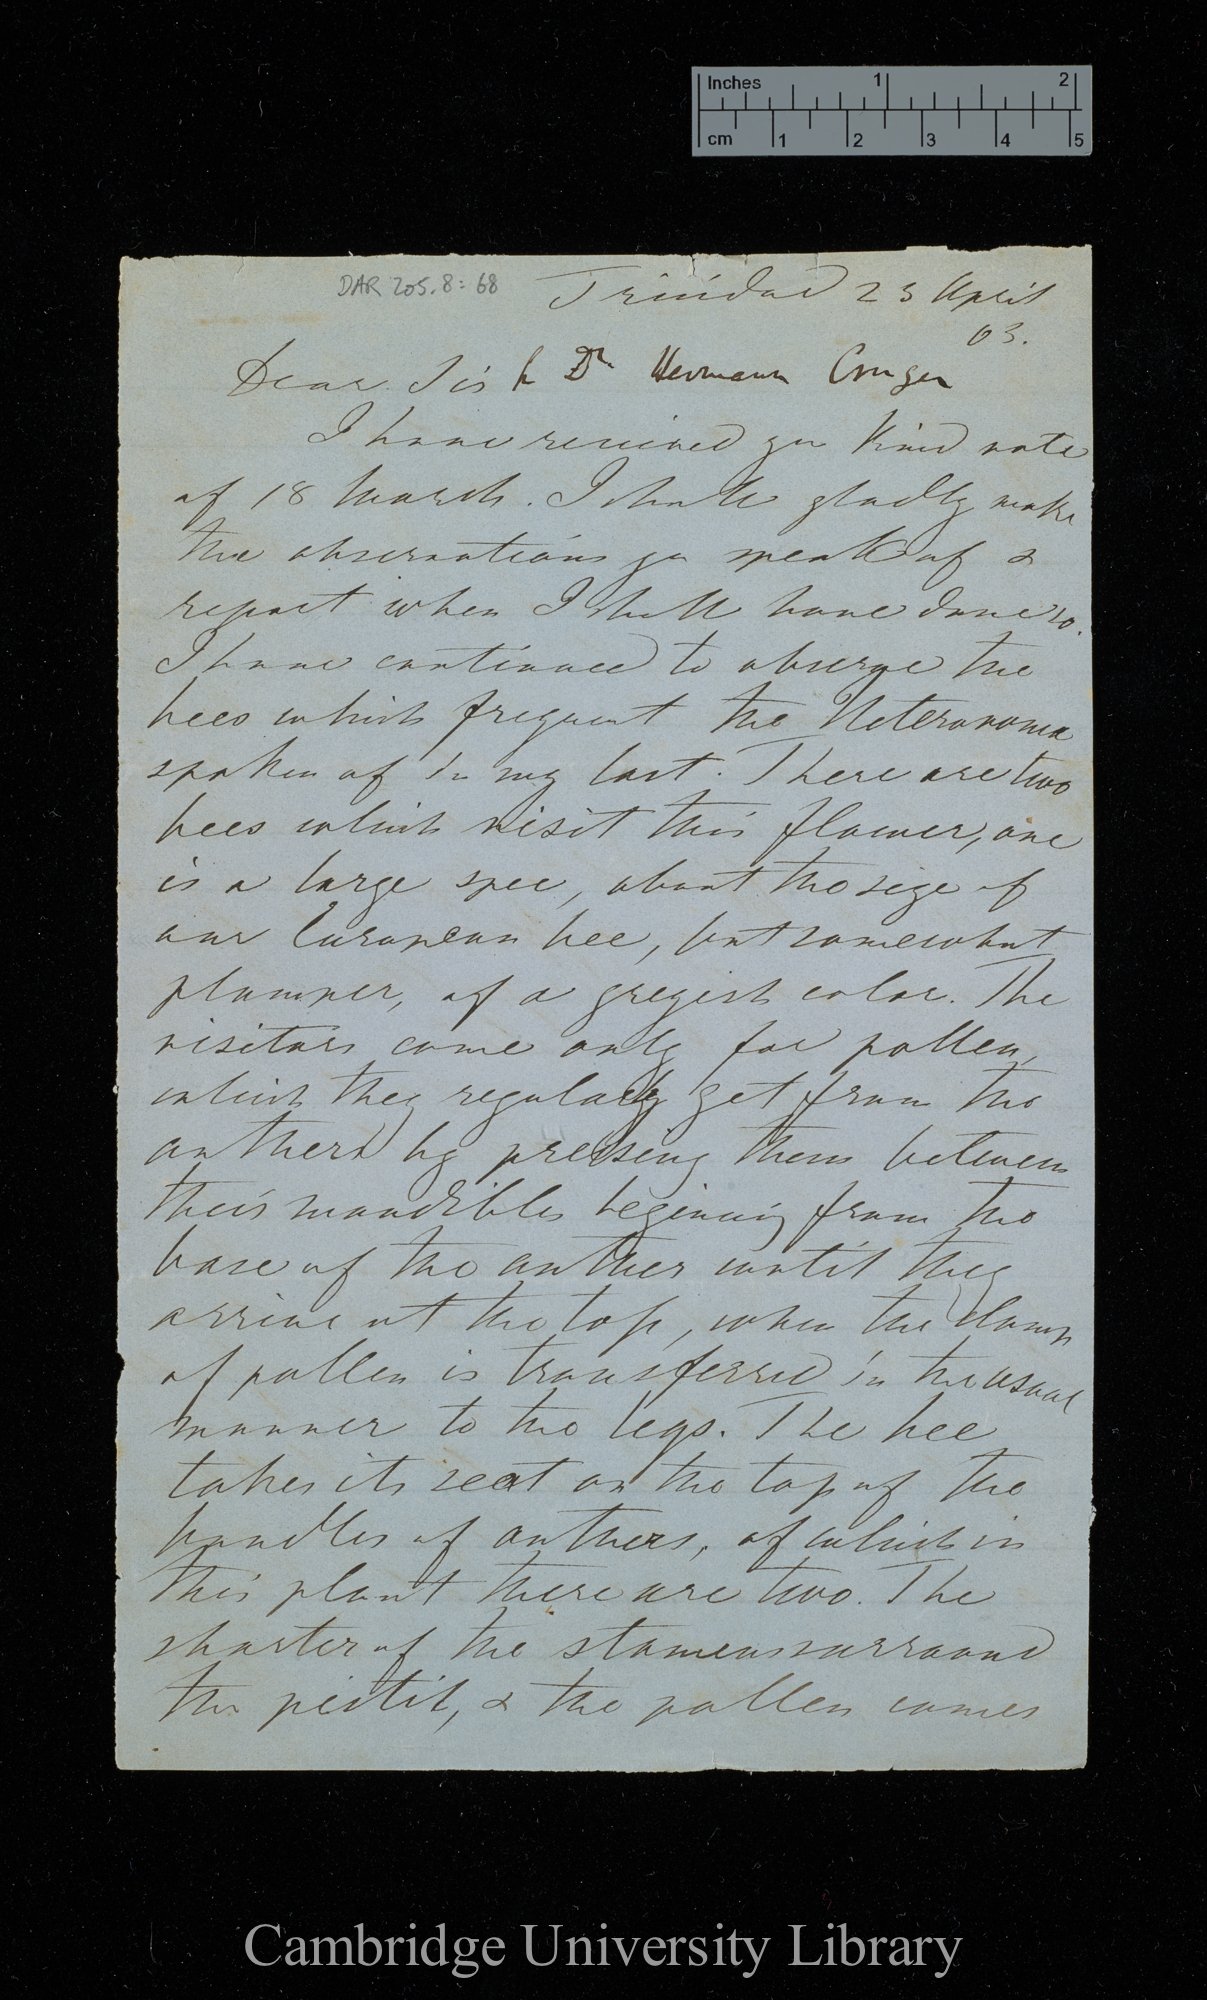 Inches 1 2
cm 1 2 3 4 5
DAR 205.8: 68
Trinidad 23 April
63.
Dear Sir Dr Hermann Crüger
I have received yr kind note
of 18 March. I shall gladly make
the observations yu speak of &
report when I shall have done so.
I have continued to observe the
bees which frequent the Heteronoma
spoken of in my last. There are two
bees which visit this flower, one
is a large spec, about the size of
our European bee, but somewhat
plumper, of a greyish color. The
visitors come only for pollen,
which they regularly get from the
anthers by pressing them between
their mandibles beginning from the
base of the anther until they
arrive at the top, when the clump
of pollen is transferred in the usual
manner to the legs. The bee
takes its seat on the top of the
bundles of anthers, of which in
this plant there are two. The
shorter of the stamens surround
the pistil, & the pollen comes
Cambridge University Library